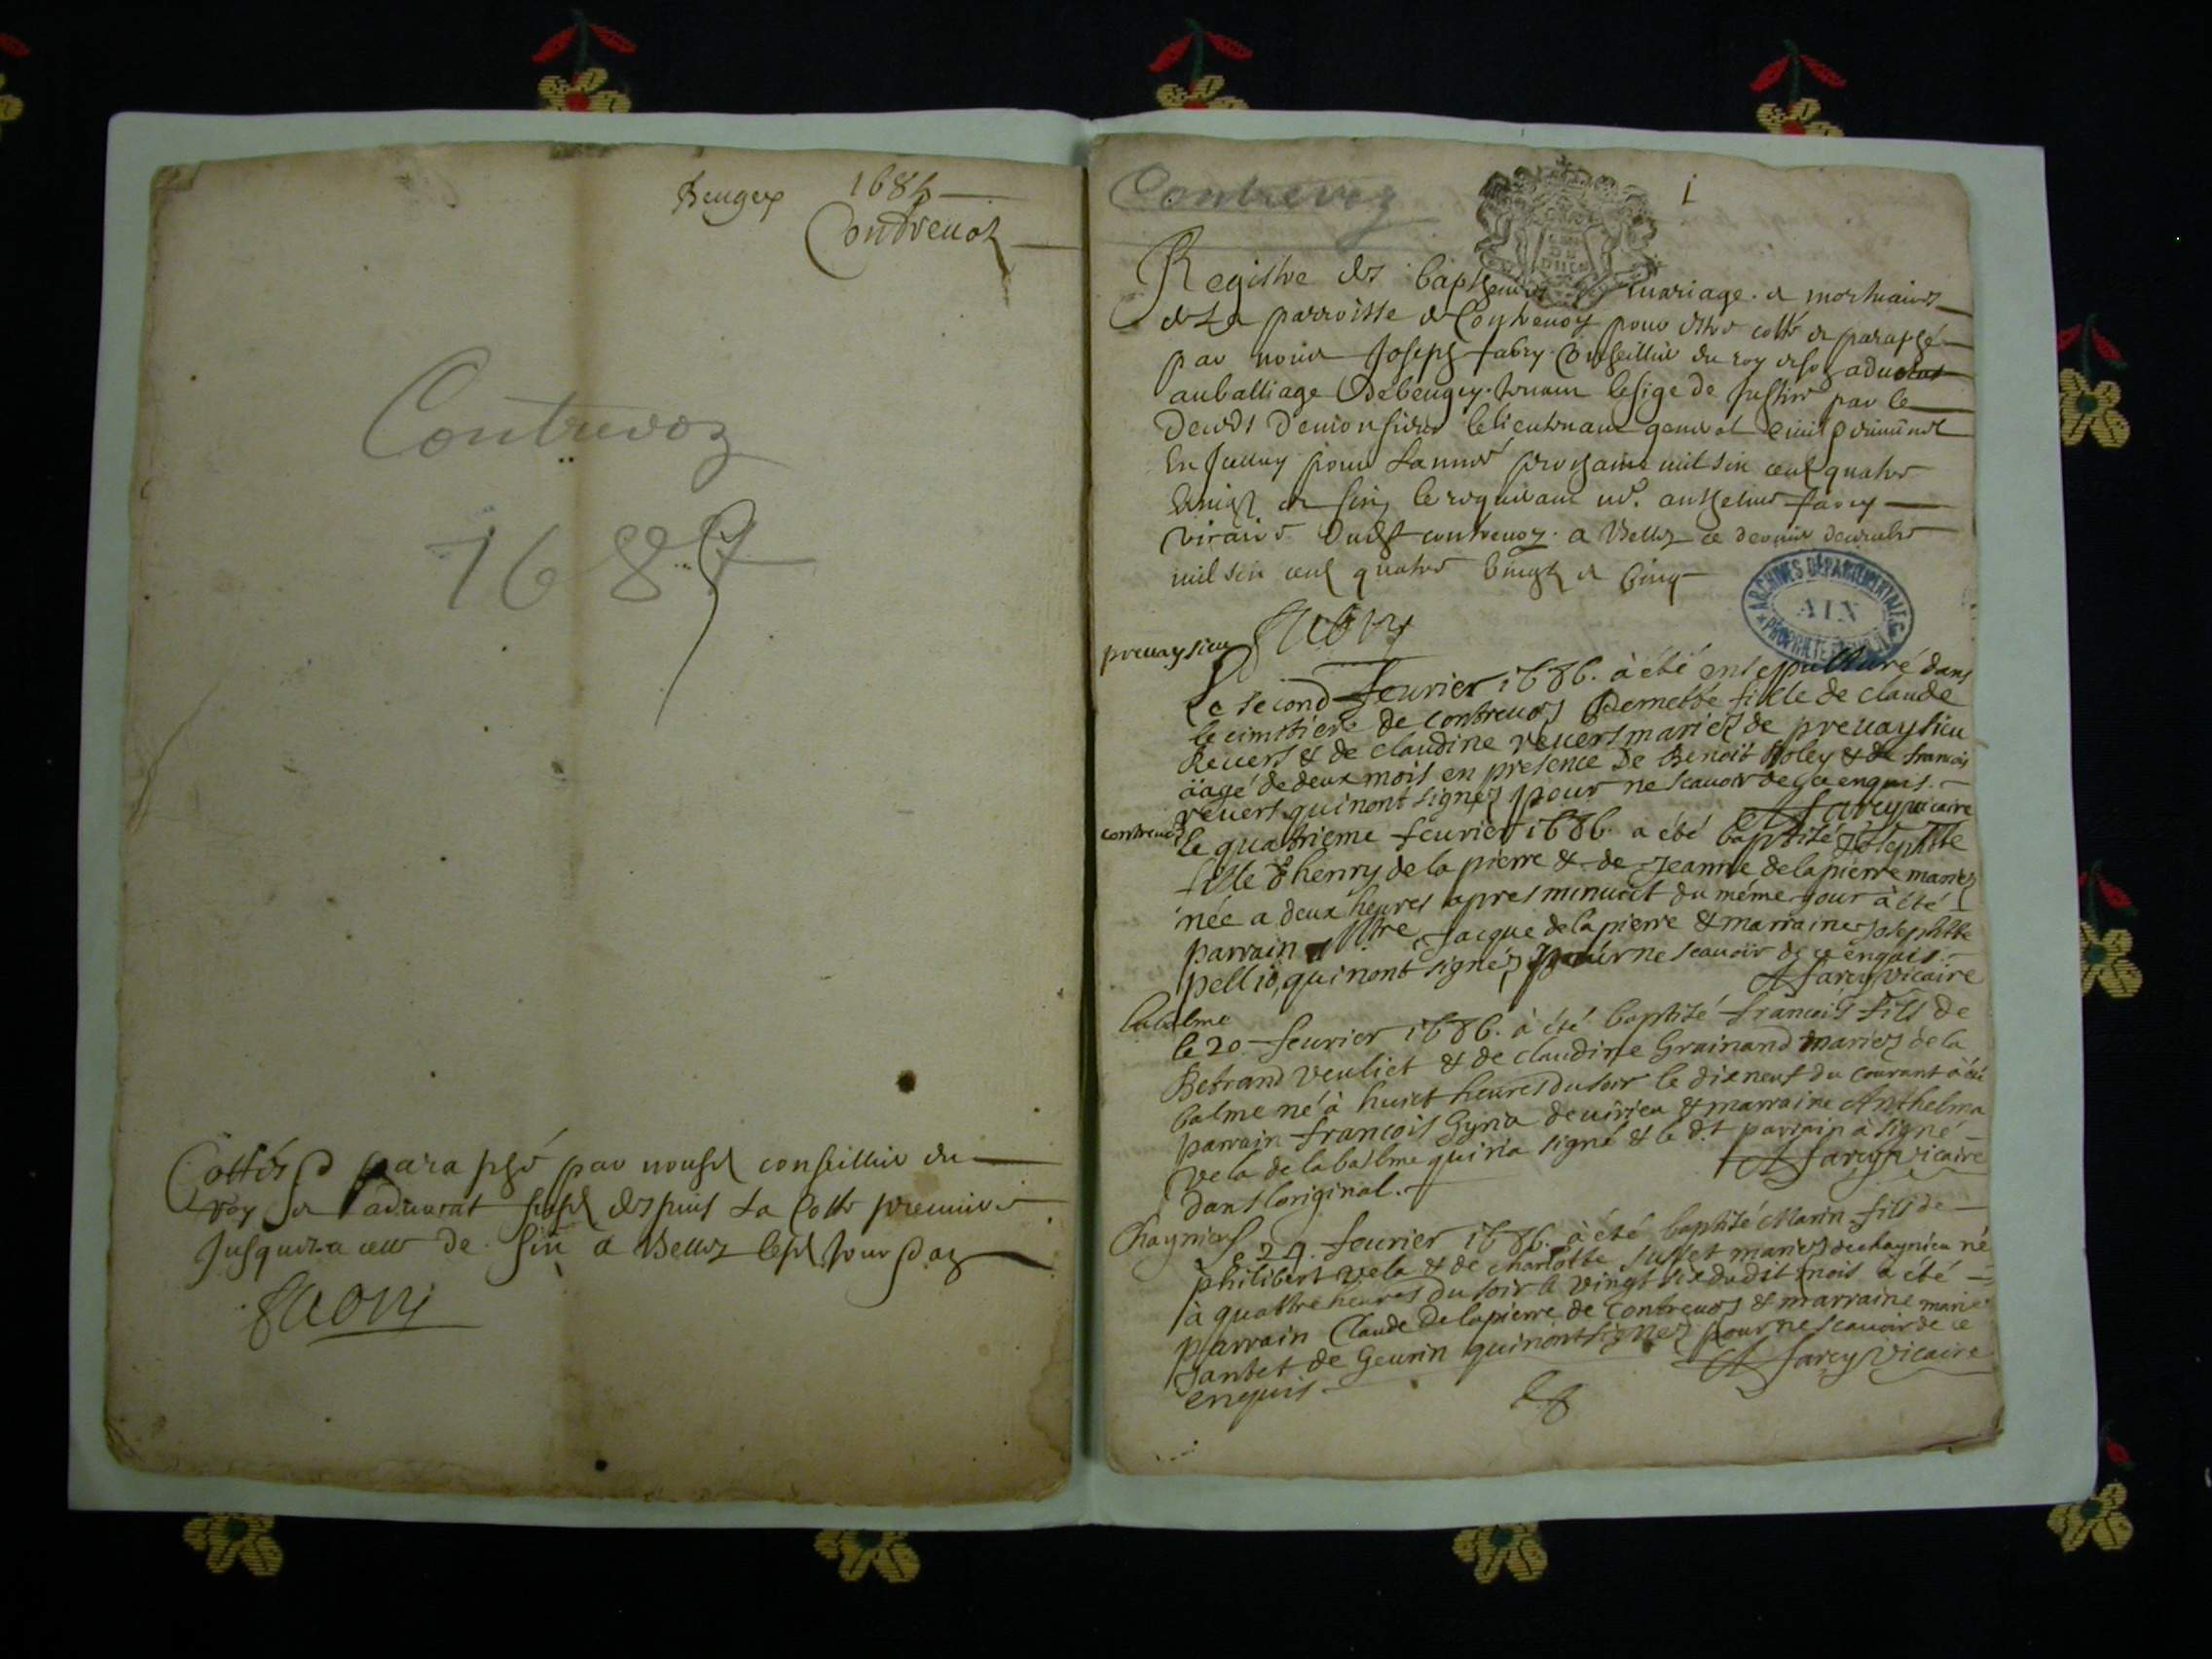 Beugey 1685
Contrevoz
Contrevoz
1687
Cottés & paraphé par nousd conseiller du
roy et advocat susd despuis La Cotte premiere
Jusques a celle de six a Belley lesd jour & an
Fabry
Contrevoz
1
Registre des baptemes mariage & mortuaires
de La parroisse de Contrevoz pour estre cotté & paraphé
par nous Joseph fabry Conseiller du roy & son advocat
au balliage De beugey tenant le sige de Justice par le
deceds de monsieur le lieutenant general civil & criminel
En pour Lannee prochaine mil six cent quatre
vingt et six le requerant mre anthelme farcy
vicaire dudt contrevoz a Belley ce dernier decembre
mil six cent quatre vingt & cinq
Fabry
ARCHIVES DÉPARTEMENTALES
AIN
PROPRIÉTÉ PUBLIQUE
prevaysieu
Le second fevrier 1686. à été ensepulturé dans
le cimitiere de contrevoz Pernette fille de claude
Revers & de claudine revers mariez de prevaysieu
äagé de deux mois en presence De Benoit Roley & de francois
revers qui nont signez pour ne scavoir de ce enquis.
A farcy vicaire
contrevoz
le quatrieme fevrier 1686. a été baptisée Josephtte
fille d henry de la pierre & de Jeanne delapierre mariez
née a deux heures apres minuict du méme jour à été
parrain Jacque delapierre & marraine Josephtte
pellio, qui nont signéz pour ne scavoir de ce enquis.
A farcy vicaire
labalme
le 20 fevrier 1686. à été baptisé francois fils de
Betrand veuliet & de claudine Grainand mariez de la
balme né à huict heures du soir le dixneuf du courant à été
parrain francois Gyria de virieu & marraine Anthelma
vela de la balme qui n'a signé & le d.t parrain à signé
dans l'original.
A farcy vicaire
Chaynieu
Le 27. fevrier 1686. à été baptisé Marin fils de
philibert vela & de charlotte Suffet mariez de chaynieu né
à quattre heures du soir le vingt six dudit mois à été
parrain Claude Delapierre de Contrevoz & marraine marie
Jantet de Geurin qui n'ont signez pour ne scavoir de ce
enquis.
A farcy vicaire